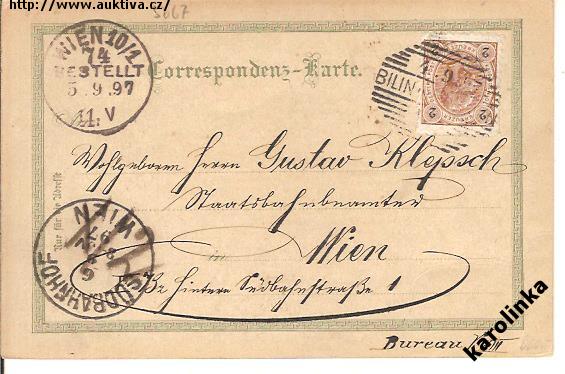 http://www.auktiva.cz/
5667
WIEN 10/1
74
BESTELLT
5.9.97
11.V
Correspondenz-Karte.
BILIN
2 2
2 2
Wohlgeboren Herrn Gustav Klepsch
Staatsbahnbeamter
in Wien
Nur für die Adresse
X/2 hintere Südbahnstraße 1
WIEN
97
SÜDBAHNHOF
Bureau
karolinka